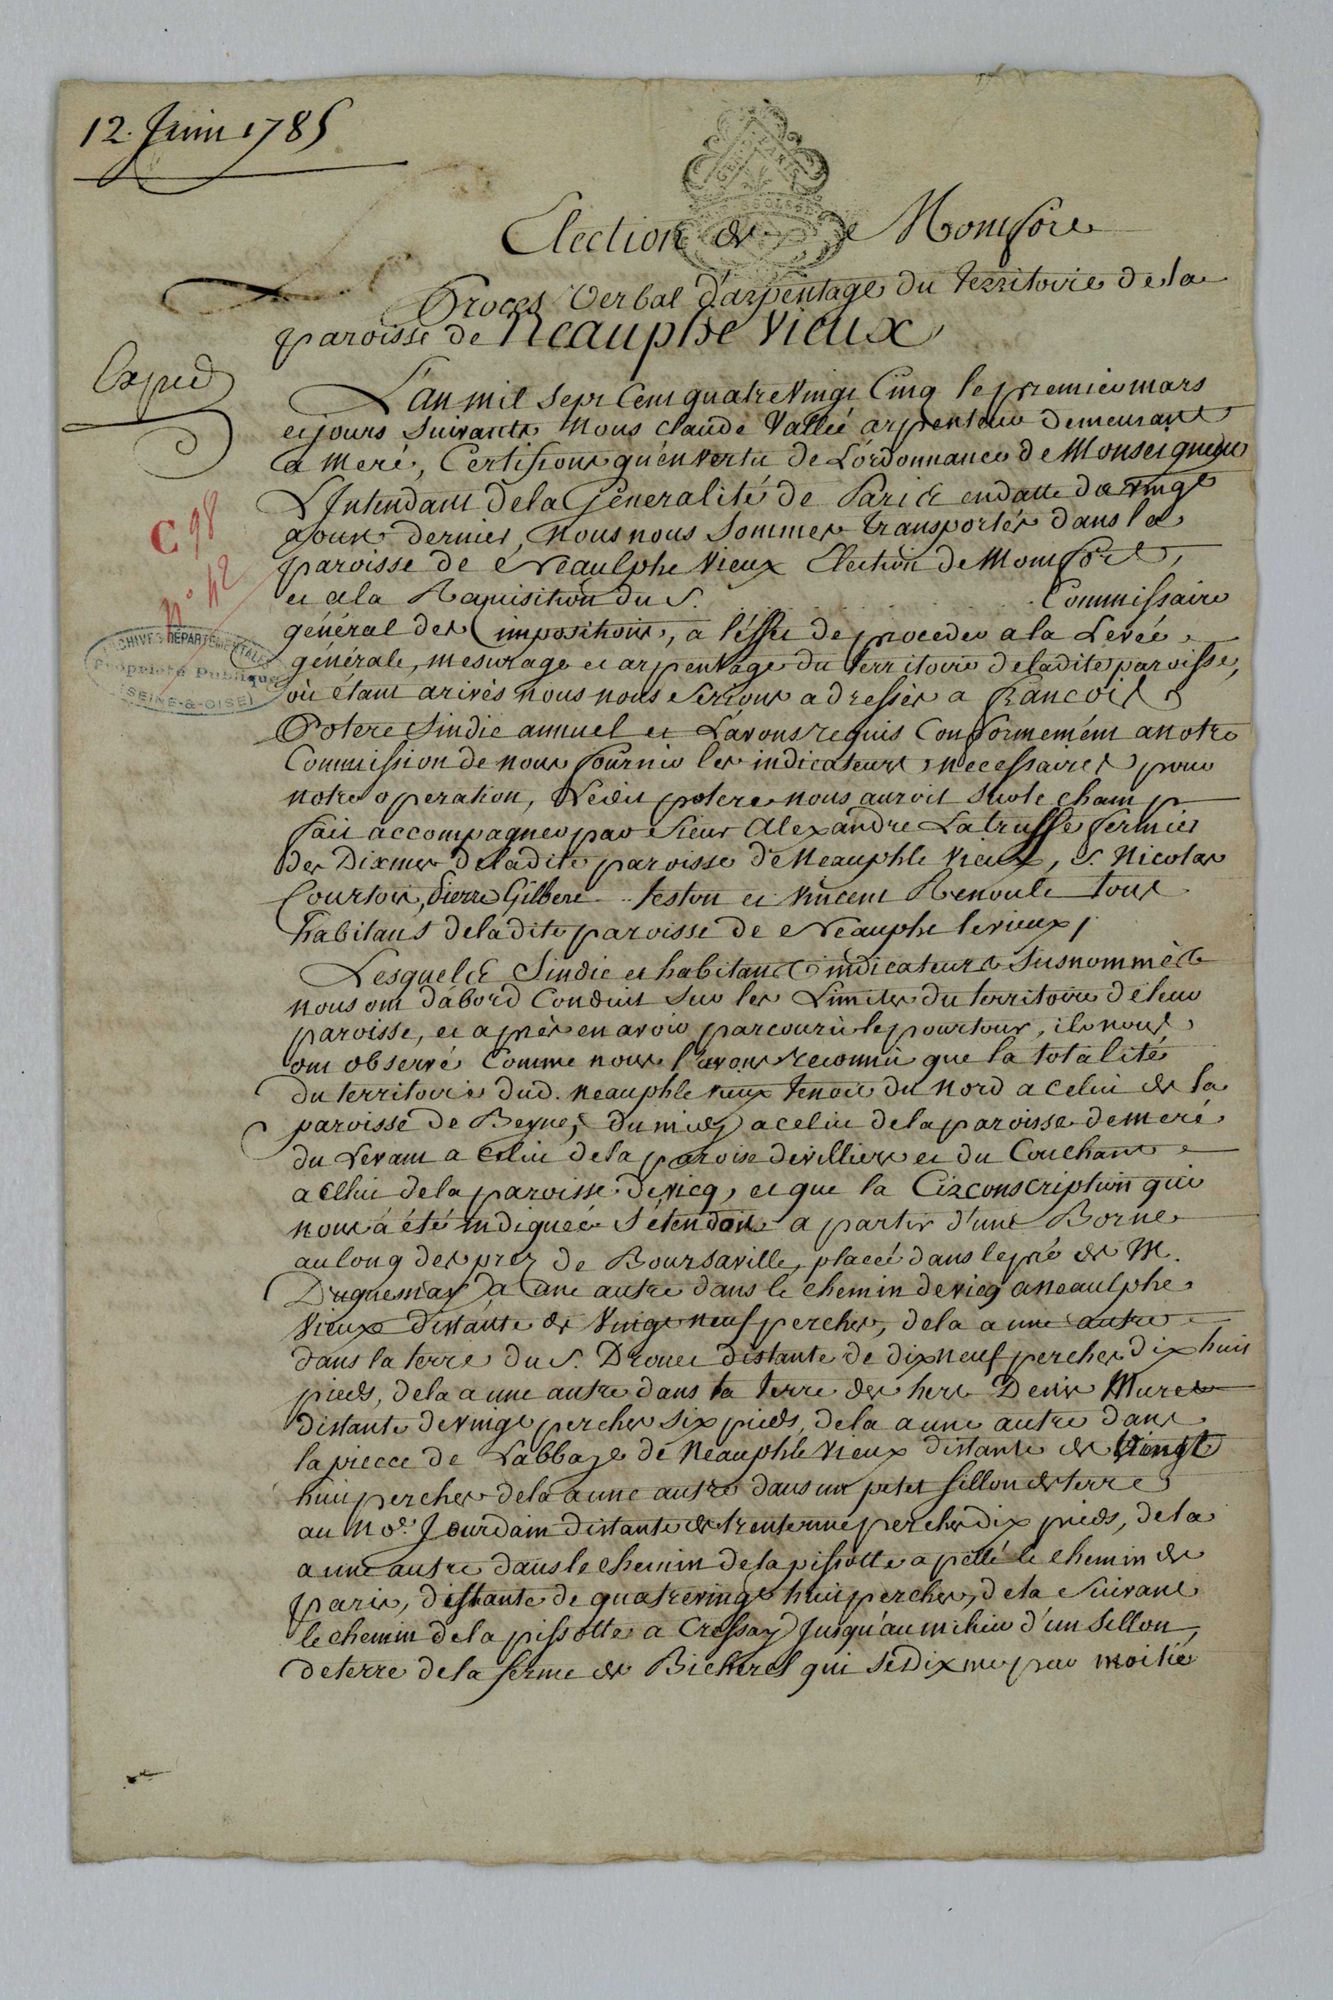 12. Juin 1785
Election de Montfort
Procès Verbal d'arpentage du territoire de la
paroisse de Neauphe Vieux
Exped
L'an mil sept Cent quatre vingt Cinq le premier mars
et jours Suivants Nous claude Vallée arpenteur Demeurant
a Meré, Certifions qu'en vertu de L'ordonnance de Monseigneur
L'Intendant de la Généralité de Paris en datte du vingt
aoust dernier, Nous nous Sommes transportés dans la
paroisse de Neaulphe Vieux Election de Montfort,
et a la Requisition du S. Commissaire
général des impositions, a l'effet de proceder a la Levée
générale, mesurage et arpentage du territoire de ladite paroisse,
où étant arivés nous nous Serions adressés a françois
Potere Sindic annuel et L'avons requis Conformément a notre
Commission de nous fournir les indicateurs necessaires pour
notre operation, Ledit potere nous auroit Sur le champ
fait accompagner par Sieur Alexandre Latruffe fermier
des Dixmes de ladite paroisse de Neauphle Vieux, S. Nicolas
Courtois, Pierre Gilbert teston et Vincent Renoult tous
habitans de ladite paroisse de Neauphe le vieux /
Lesquels Sindic et habitans indicateurs Susnommés
nous ont dabord Conduit Sur les Limites du territoire de leur
paroisse, et après en avoir parcouru le pourtour, ils nous
ont observé Comme nous l'avons reconnu que la totalité
du territoire dud. neauphle vieux tenoit du Nord a celui de la
paroisse de Beyne, du midy a celui de la paroisse de meré
du Levant a Celui de la paroise de villiers et du Couchant
a Celui de la paroisse de vicq, et que la Circonscription qui
nous a été indiquée S'étendoit a partir d'une Borne
au long des prez de Boursaville, placée dans le pré de M.
Duquesnay a une autre dans le chemin de vicq a neaulphe
Vieux distante de Vingt neuf perches, de la a une autre
dans la terre du S. Drouet distante de dix neuf perches dix huit
pieds, de la a une autre dans la terre des hers Denis Muret
distante de vingt perches six pieds, de la a une autre dans
la piece de L'abbaye de Neauphle Vieux distante de Vingt
huit perches de la a une autre dans un petit Sillon de terre
au No. Jourdain distante de trente une perches dix pieds, de la
a une autre dans le chemin de la pissotte apellé le chemin de
paris, distante de quatre vingt huit perches, de la Suivant
le chemin de la pissotte a Cressay Jusqu'au milieu d'un Sillon
de terre de la ferme de Bicherel qui Se Dixme par moitié
C 98
N° 42
ARCHIVES DÉPARTEMENTALES
Propriété Publique
(SEINE-&-OISE)